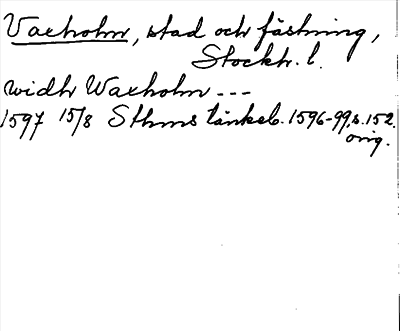 Vaxholm, stad och fästning,
Stockh. l.
widh Waxholm ---
1597 15/8 Sthms tänkeb. 1596-99, s. 152.
orig.